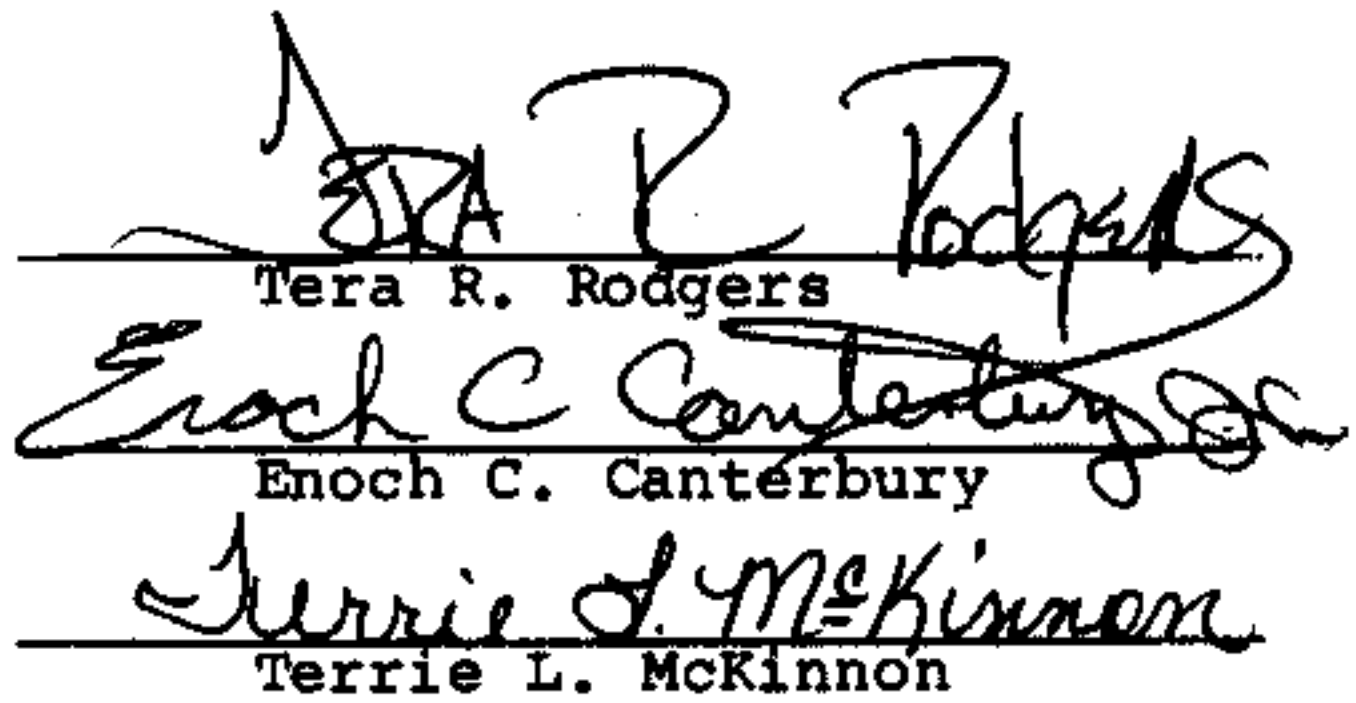 Tera R Rodgers
Tera R. Rodgers
Enoch C Canterbury Jr
Enoch C. Canterbury
Terrie L. McKinnon
Terrie L. McKinnon